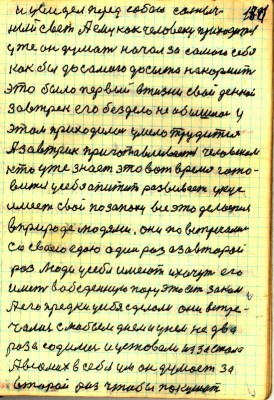 1821
и увидел перед собою солныч-
ный свет А ему как человеку приходится
уже он думать начал за самого себя
как бы до самого досыта накормить
это было первый в жизни свой денной
завтрак его без дела не обошлось у
этом приходилось умело трудится
А завтрак приготавливается человеком
кто уже знает это вот время гото-
вится у себя аппетит развивает уже
имеет свой по запаху все это делается
в природе людями, они то встречались
со своею едою один раз а за второй
раз люди у себя имеют и хочут его
иметь в обеденную пору это ест закон
А его предки у себя сделали они встре-
чались с таким днем и у нем не два
раза садились и уставали из за стола
А в своих в себя ум он думает за
второй раз чтобы покушать